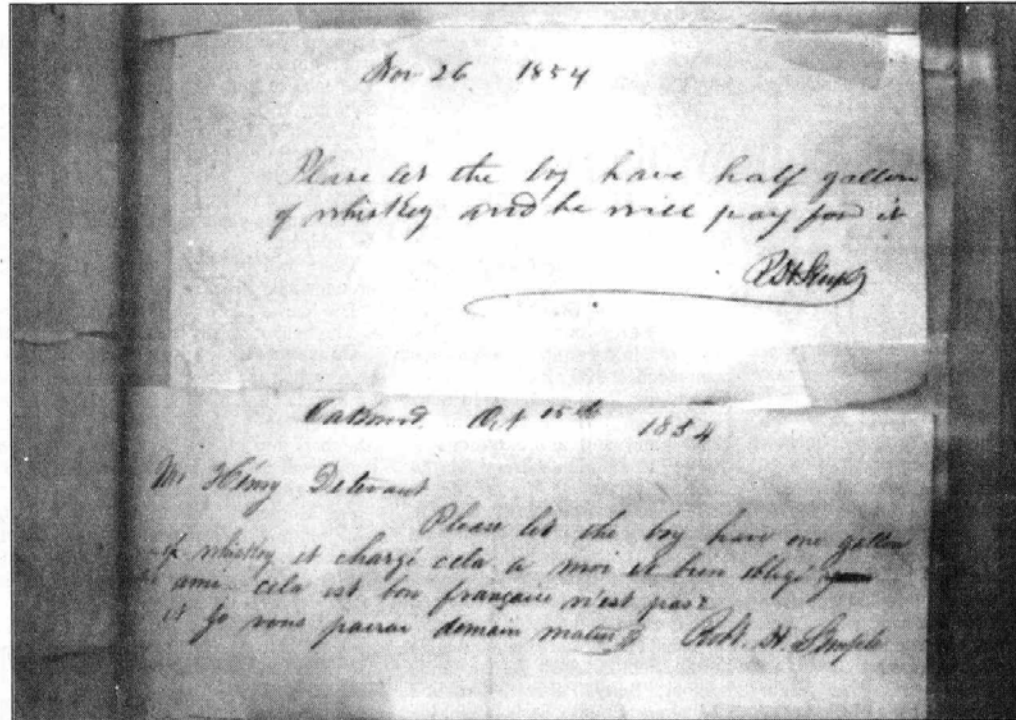 Nov 26 1854
Please let the boy have half gallon
of whiskey and he will pay for it
Oct 15th 1854
Mr Hénry
Please let the boy have one gallon
of whiskey et chargé cela a moi et bien obligé
ami cela est bon française n'est pas?
et Je vous paerai domain matin Robt. H.